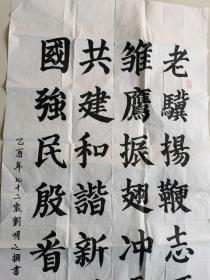 老驥揚鞭志
雏鷹振翅冲
共建和諧新
國強民殷看
乙酉年七十二歲劉明之撰書